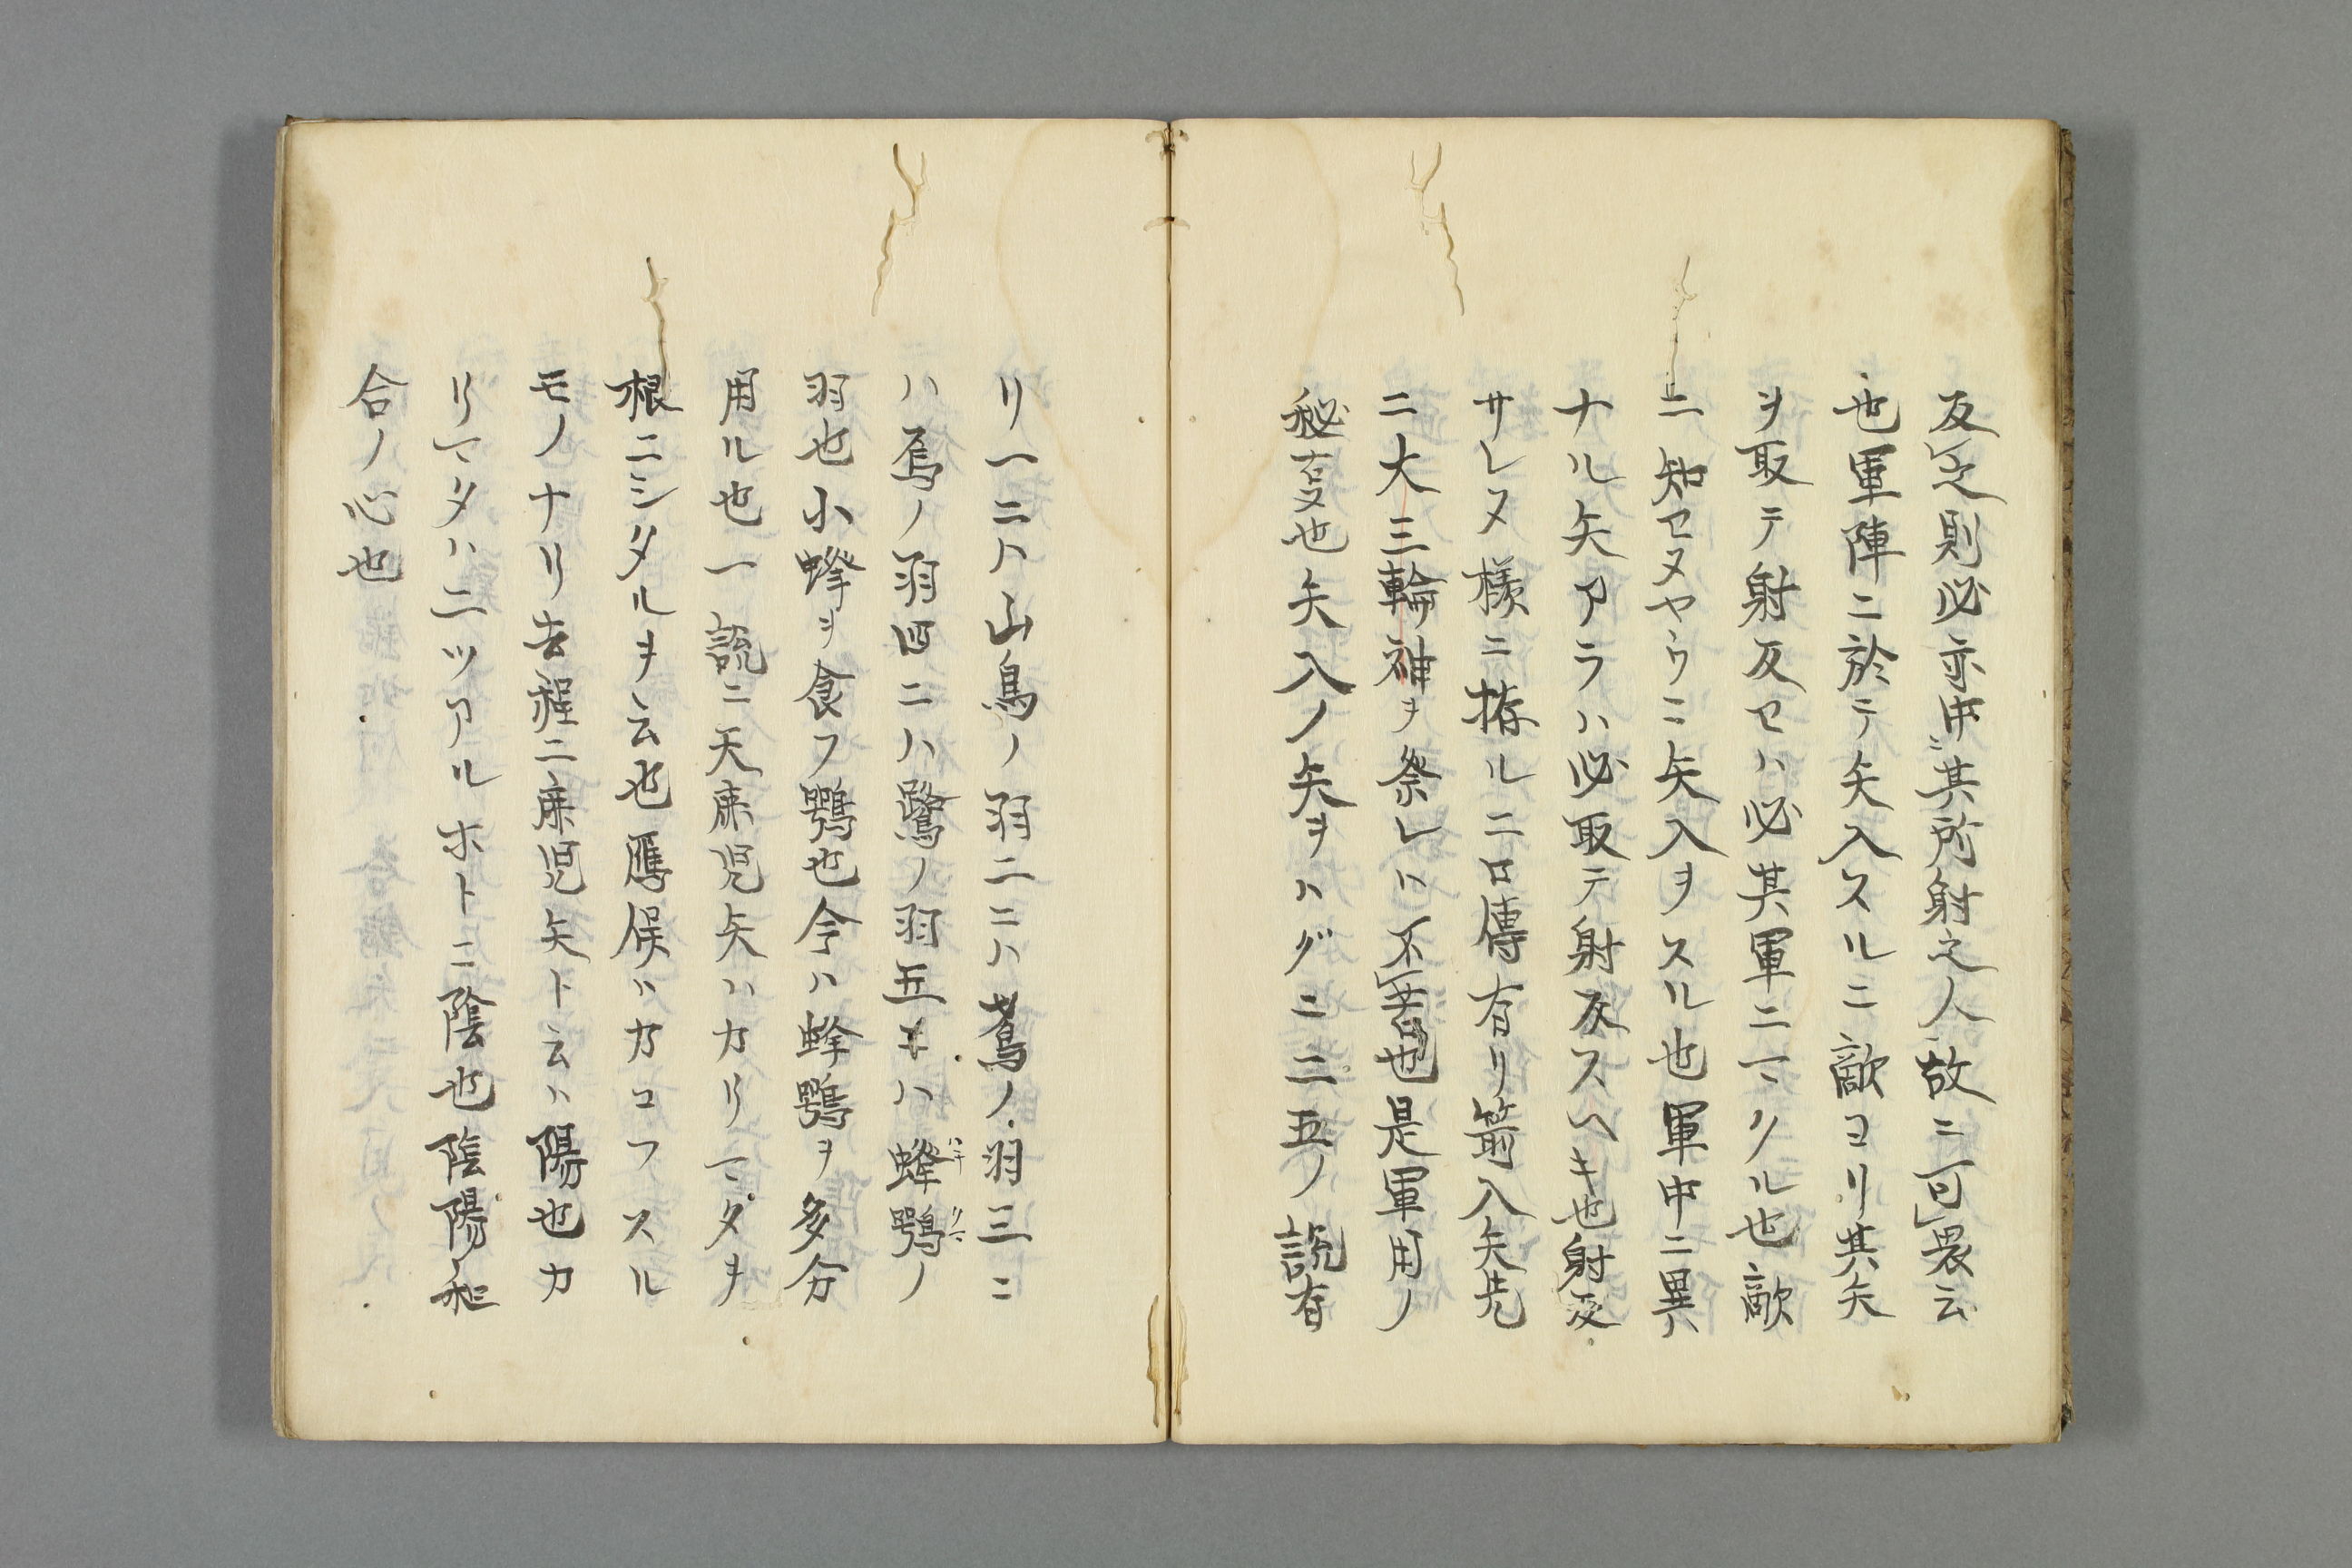 反[之]則必亦中其所射之人故ニ可畏云
也軍陣ニ於テ矢入スルニ敵ヨリ其矢
ヲ取テ射反セハ必其軍ニマクル也敵
ニ知セヌヤウニ矢入ヲスル也軍中ニ異
ナル矢アラハ必取テ射反スヘキ也射反
サレヌ様ニ拵ルニ口傳有リ箭入矢先
ニ大三輪神ヲ祭レハ不[害]也是軍用ノ
秘事也矢入ノ矢ヲハグニ二五ノ説有
リ一ニハ山鳥ノ羽二ニハ鴛ノ羽三ニ
ハ烏ノ羽四ニハ鷺ノ羽五ニハ蜂鶚ノ
羽也小蜂ヲ食フ鶚也今ハ蜂鶚ヲ多分
用ル也一説ニ天鹿児矢ハカリマタヲ
根ニシタルヲ云也鷹侯ハカコフスル
モノナリ去程ニ鹿児矢ト云ハ陽也カ
リマタハ二ツアルホトニ陰也陰陽和
合ノ心也